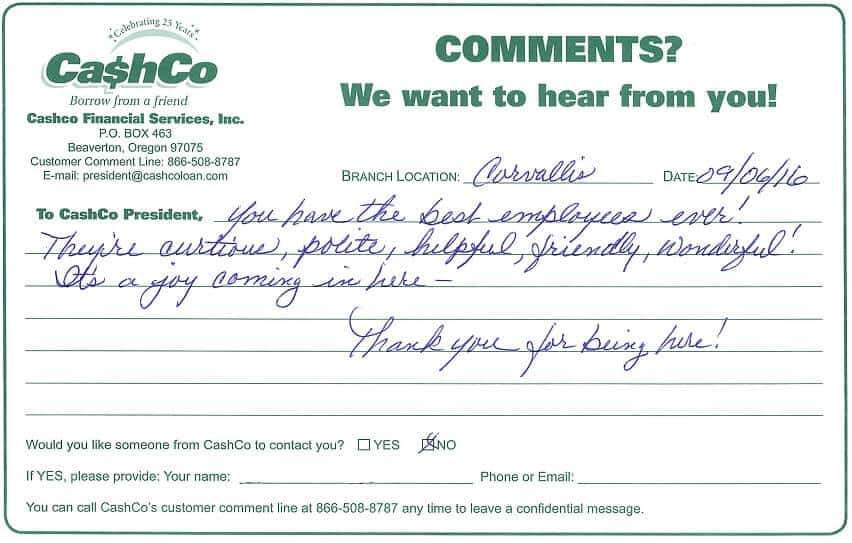 Celebrating 25 Years
Ca$hCo
Borrow from a friend
Cashco Financial Services, Inc.
P.O. BOX 463
Beaverton, Oregon 97075
Customer Comment Line: 866-508-8787
E-mail: president@cashcoloan.com
COMMENTS?
We want to hear from you!
BRANCH LOCATION: Corvallis DATE: 09/06/16
To CashCo President, You have the best employees ever!
They're curtious, polite, helpful, friendly, wonderful!
It's a joy coming in here –
Thank you for being here!
Would you like someone from CashCo to contact you? ☐ YES ☒ NO
If YES, please provide: Your name: Phone or Email:
You can call CashCo's customer comment line at 866-508-8787 any time to leave a confidential message.